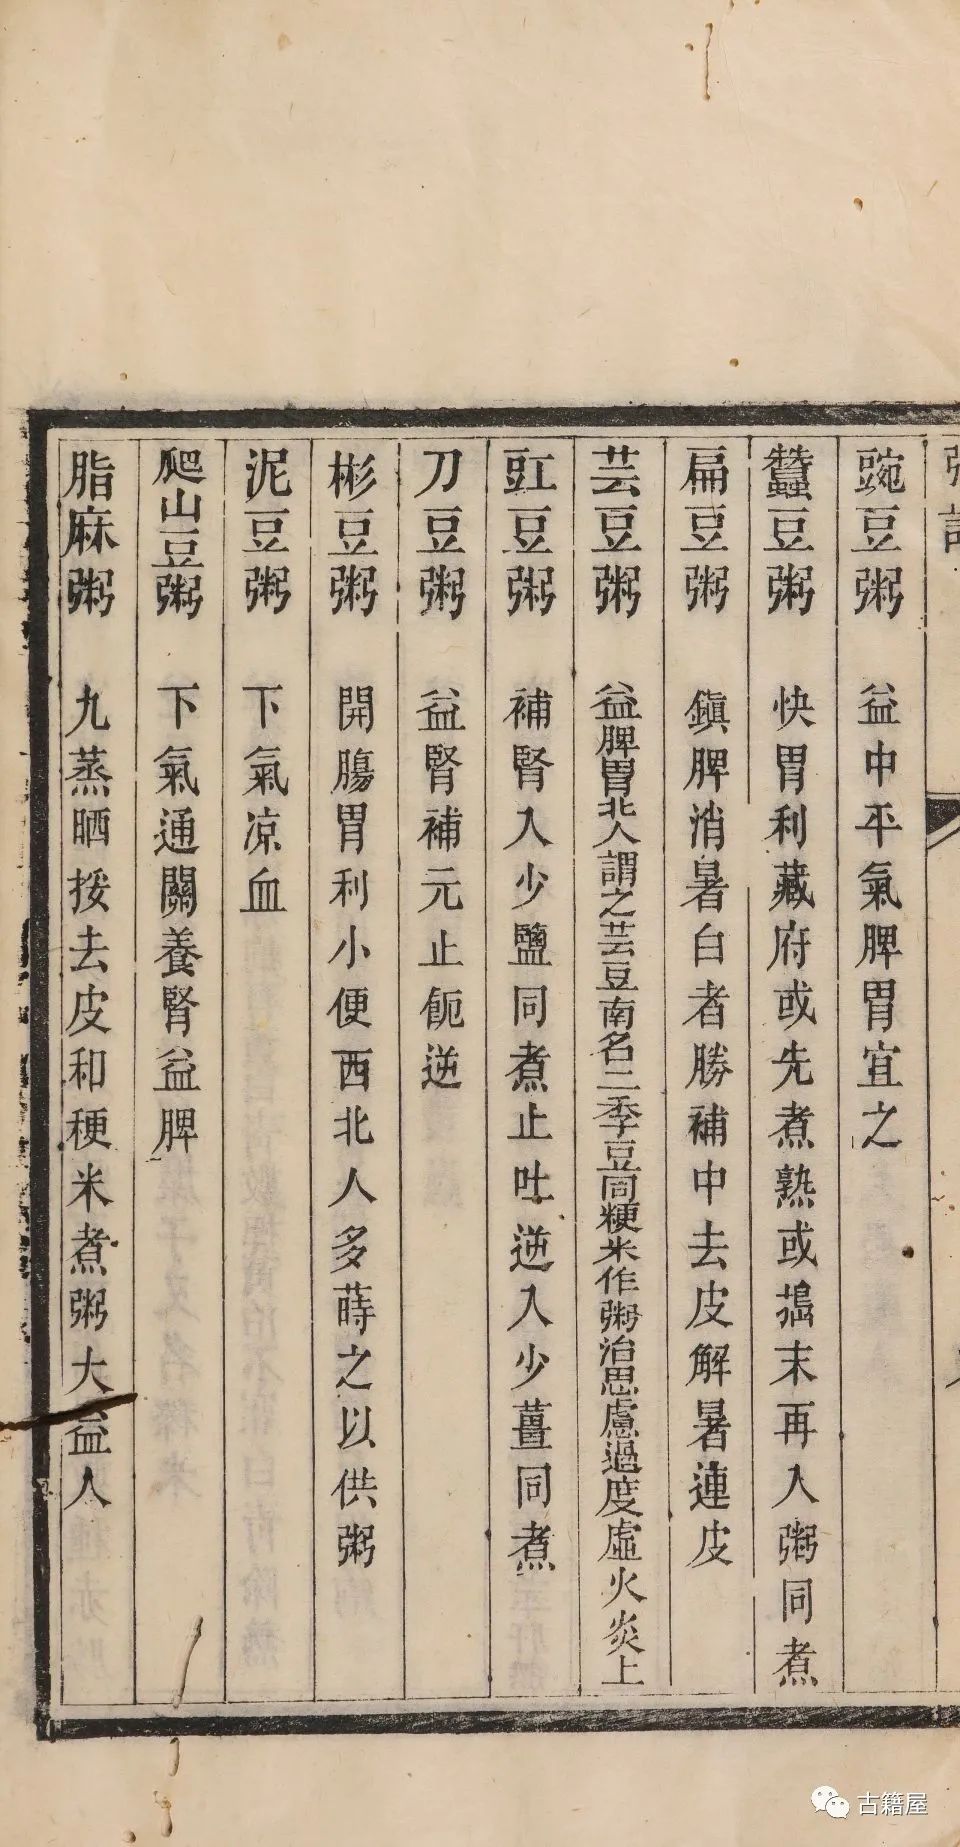 粥譜
豌豆粥　益中平氣脾胃宜之
蠶豆粥　快胃利藏府或先煮熟或搗末再入粥同煮
扁豆粥　鎮脾消暑白者勝補中去皮解暑連皮
芸豆粥　益脾胃北人謂之芸豆南名二季豆同粳米作粥治思慮過度虛火炎上
豇豆粥　補腎入少鹽同煮止吐逆入少薑同煮
刀豆粥　益腎補元止飥逆
彬豆粥　開腸胃利小便西北人多蒔之以供粥
泥豆粥　下氣凉血
爬山豆粥　下氣通關養腎益脾
脂麻粥　九蒸晒挼去皮和粳米煮粥大益人
古籍屋